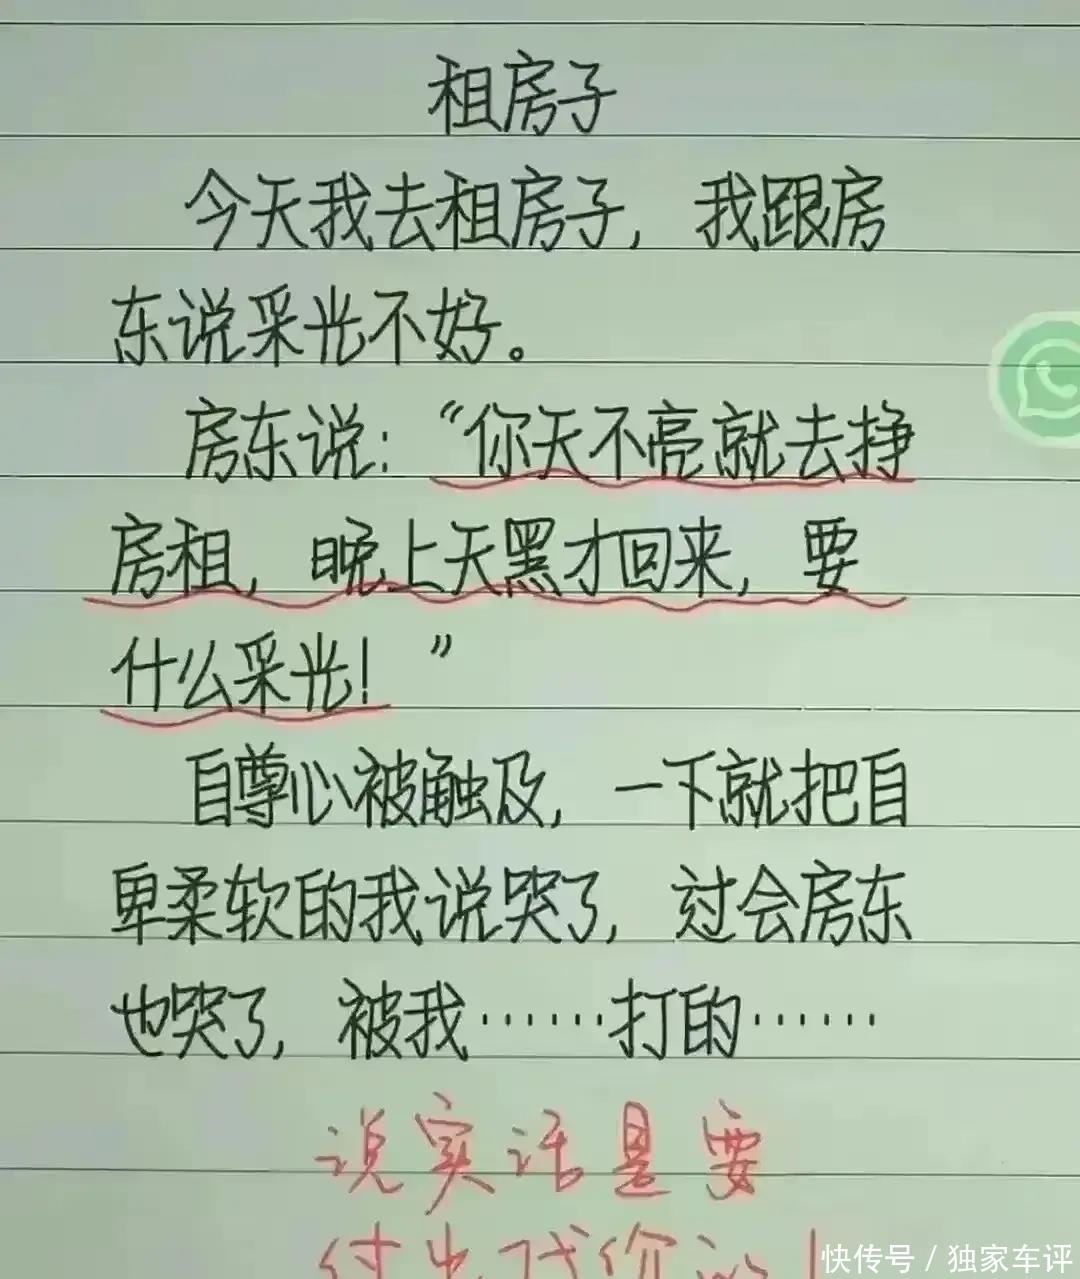 租房子
今天我去租房子，我跟房
东说采光不好。
房东说：“你天不亮就去挣
房租，晚上天黑才回来，要
什么采光！”
自尊心被触及，一下就把自
卑柔软的我说哭了，过会房东
也哭了，被我……打的……
说实话是要
付出代价的！
快传号 / 独家车评